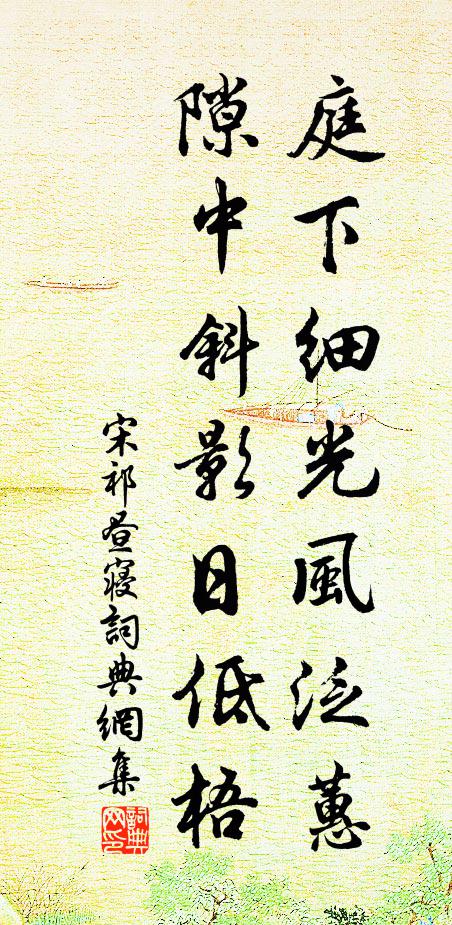 庭下細光風泛蕙
隙中斜影日低梧
宋祁晝寢詞典網集
詞典網印